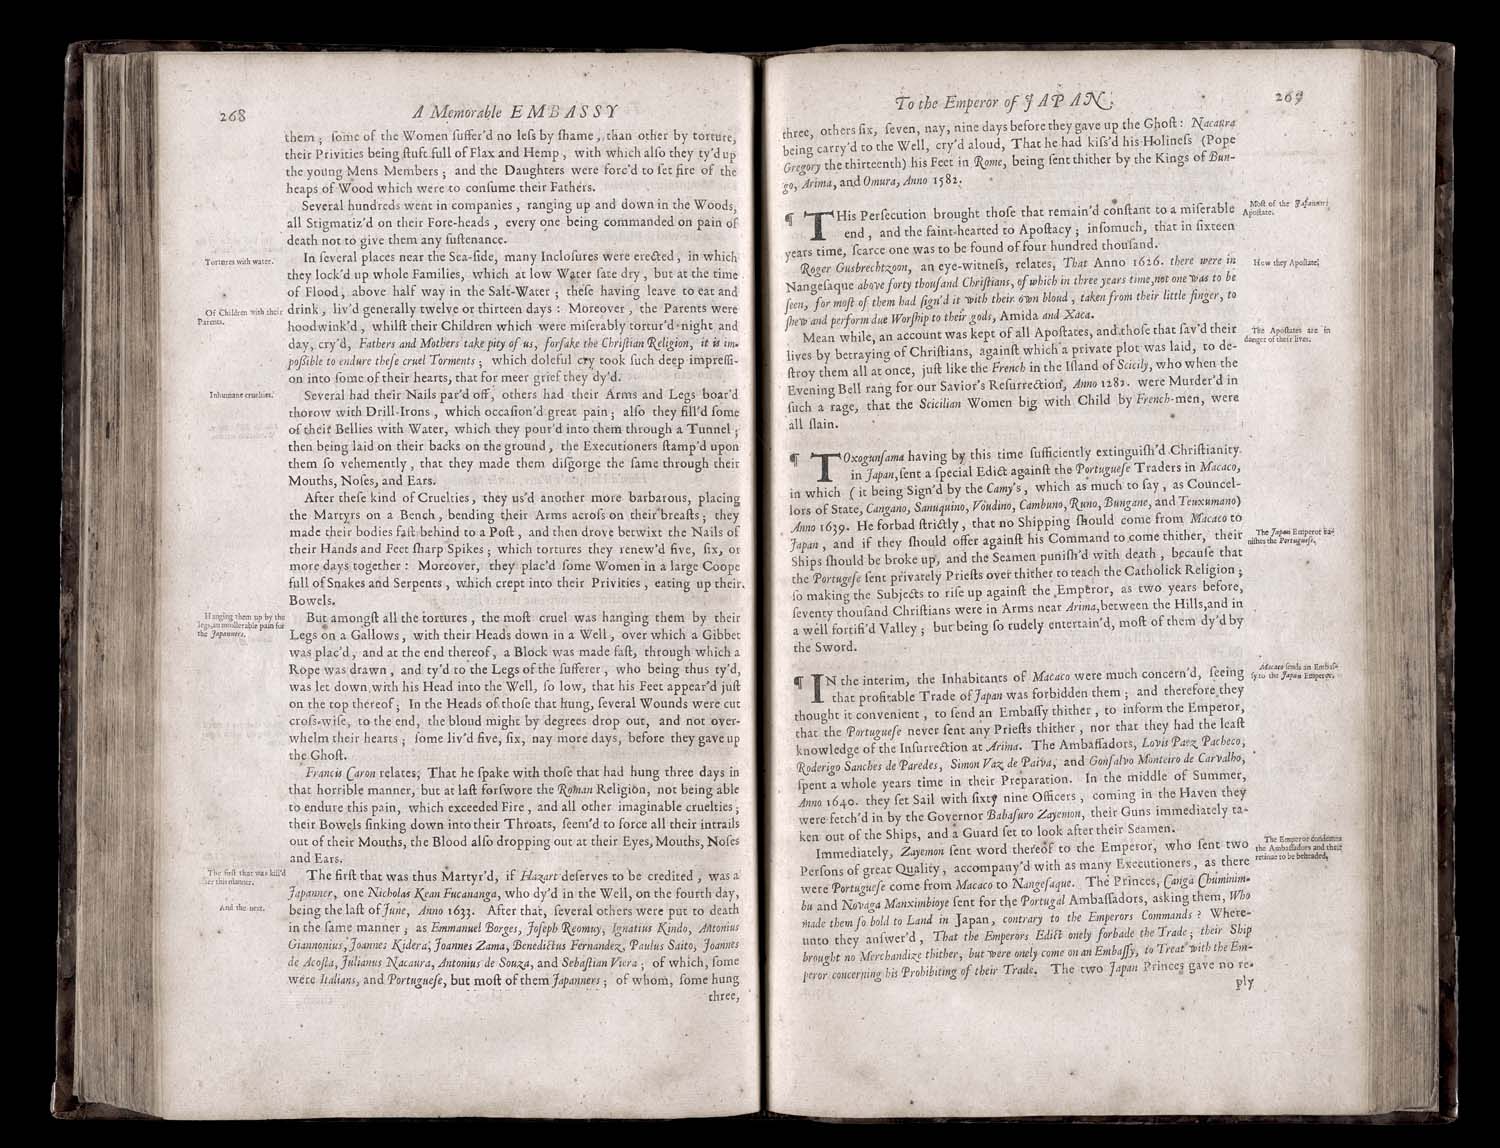 268
A Memorable EMBASSY
them ; ſome of the Women ſuffer'd no leſs by ſhame , than other by torture,
their Privities being ſtuft full of Flax and Hemp , with which alſo they ty'd up
the young Mens Members ; and the Daughters were forc'd to ſet fire of the
heaps of Wood which were to conſume their Fathers.
Several hundreds went in companies , ranging up and down in the Woods,
all Stigmatiz'd on their Fore-heads , every one being commanded on pain of
death not to give them any ſuſtenance.
Tortures with water.
In ſeveral places near the Sea-ſide, many Incloſures were erected , in which
they lock'd up whole Families, which at low Water ſate dry , but at the time
of Flood, above half way in the Salt-Water ; theſe having leave to eat and
Of Children with their
Parents.
drink , liv'd generally twelve or thirteen days : Moreover , the Parents were
hoodwink'd , whilſt their Children which were miſerably tortur'd night and
day, cry'd, Fathers and Mothers take pity of us, forſake the Chriſtian Religion, it is im-
poſſible to endure theſe cruel Torments ; which doleful cry took ſuch deep impreſſi-
on into ſome of their hearts, that for meer grief they dy'd.
Inhumane cruelties.
Several had their Nails par'd off, others had their Arms and Legs boar'd
thorow with Drill-Irons , which occaſion'd great pain ; alſo they fill'd ſome
of their Bellies with Water, which they pour'd into them through a Tunnel ;
then being laid on their backs on the ground , the Executioners ſtamp'd upon
them ſo vehemently , that they made them diſgorge the ſame through their
Mouths, Noſes, and Ears.
After theſe kind of Cruelties , they us'd another more barbarous, placing
the Martyrs on a Bench, bending their Arms acroſs on their breaſts ; they
made their bodies faſt behind to a Poſt , and then drove betwixt the Nails of
their Hands and Feet ſharp Spikes ; which tortures they renew'd five, ſix, or
more days together : Moreover, they plac'd ſome Women in a large Coope
full of Snakes and Serpents , which crept into their Privities , eating up their
Bowels.
Hanging them up by the
legs, an intollerable pain for
the Japanners.
But amongſt all the tortures , the moſt cruel was hanging them by their
Legs on a Gallows , with their Heads down in a Well , over which a Gibbet
was plac'd , and at the end thereof , a Block was made faſt, through which a
Rope was drawn , and ty'd to the Legs of the ſufferer , who being thus ty'd,
was let down with his Head into the Well, ſo low, that his Feet appear'd juſt
on the top thereof ; In the Heads of thoſe that hung, ſeveral Wounds were cut
croſs-wiſe, to the end, the bloud might by degrees drop out, and not over-
whelm their hearts ; ſome liv'd five, ſix, nay more days, before they gave up
the Ghoſt.
Francis Caron relates, That he ſpake with thoſe that had hung three days in
that horrible manner, but at laſt forſwore the Roman Religion, not being able
to endure this pain, which exceeded Fire , and all other imaginable cruelties ;
their Bowels ſinking down into their Throats, ſeem'd to force all their intrails
out of their Mouths, the Blood alſo dropping out at their Eyes, Mouths, Noſes
and Ears.
The firſt that was kill'd
after this manner.
The firſt that was thus Martyr'd, if Hazart deſerves to be credited , was a
Japanner, one Nicholas Kean Fucananga, who dy'd in the Well, on the fourth day,
And the next.
being the laſt of June, Anno 1633. After that, ſeveral others were put to death
in the ſame manner ; as Emmanuel Borges, Joſeph Reomuy, Ignatius Kindo, Antonius
Giannonius, Joannes Kidera, Joannes Zama, Benedictus Fernandez, Paulus Saito, Joannes
de Acoſta, Julianus Nacaura, Antonius de Souza, and Sebaſtian Viera ; of which, ſome
were Italians, and Portugueſe, but moſt of them Japanners ; of whom, ſome hung
three,
To the Emperor of JAPAN.
269
three, others ſix, ſeven, nay, nine days before they gave up the Ghoſt : Nacaura
being carry'd to the Well, cry'd aloud, That he had kiſs'd his Holineſs (Pope
Gregory the thirteenth) his Feet in Rome, being ſent thither by the Kings of Bun-
go, Arima, and Omura, Anno 1582.
¶ THis Perſecution brought thoſe that remain'd conſtant to a miſerable
Moſt of the Japanners
Apoſtate.
end , and the faint-hearted to Apoſtacy ; inſomuch, that in ſixteen
years time, ſcarce one was to be found of four hundred thouſand.
Roger Gusbrechtzoon, an eye-witneſs, relates, That Anno 1626. there were in
How they Apoſtate.
Nangeſaque above forty thouſand Chriſtians, of which in three years time, not one was to be
ſeen, for moſt of them had ſign'd it with their own bloud , taken from their little finger, to
ſhew and perform due Worſhip to their gods, Amida and Xaca.
Mean while, an account was kept of all Apoſtates, and thoſe that ſav'd their
The Apoſtates are in
danger of their lives.
lives by betraying of Chriſtians, againſt which a private plot was laid, to de-
ſtroy them all at once, juſt like the French in the Iſland of Scicily, who when the
Evening Bell rang for our Savior's Reſurrection, Anno 1282. were Murder'd in
ſuch a rage, that the Scicilian Women big with Child by French-men, were
all ſlain.
¶ TOxogunſama having by this time ſufficiently extinguiſh'd Chriſtianity
in Japan, ſent a ſpecial Edict againſt the Portugueſe Traders in Macaco,
in which ( it being Sign'd by the Camy's , which as much to ſay , as Councel-
lors of State, Cangano, Sanuquino, Voudino, Cambuno, Runo, Bungane, and Teuxumano)
Anno 1639. He forbad ſtrictly , that no Shipping ſhould come from Macaco to
Japan , and if they ſhould offer againſt his Command to come thither, their
The Japan Emperor ba-
niſhes the Portugueſe.
Ships ſhould be broke up, and the Seamen puniſh'd with death , becauſe that
the Portugeſe ſent privately Prieſts over thither to teach the Catholick Religion ;
ſo making the Subjects to riſe up againſt the Emperor, as two years before,
ſeventy thouſand Chriſtians were in Arms near Arima, between the Hills, and in
a well fortifi'd Valley ; but being ſo rudely entertain'd, moſt of them dy'd by
the Sword.
¶ IN the interim, the Inhabitants of Macaco were much concern'd, ſeeing
Macaco ſends an Embaſ-
ſy to the Japan Emperor.
that profitable Trade of Japan was forbidden them ; and therefore they
thought it convenient , to ſend an Embaſſy thither , to inform the Emperor,
that the Portugueſe never ſent any Prieſts thither , nor that they had the leaſt
knowledge of the Inſurrection at Arima. The Ambaſſadors, Lovis Paez Pacheco,
Roderigo Sanches de Paredes, Simon Vaz de Paiva, and Gonſalvo Monteiro de Carvalho,
ſpent a whole years time in their Preparation. In the middle of Summer,
Anno 1640. they ſet Sail with ſixty nine Officers , coming in the Haven they
were fetch'd in by the Governor Babaſuro Zayemon, their Guns immediately ta-
ken out of the Ships, and a Guard ſet to look after their Seamen.
Immediately, Zayemon ſent word thereof to the Emperor, who ſent two
The Emperor condemns
the Ambaſſadors and their
retinue to be beheaded.
Perſons of great Quality , accompany'd with as many Executioners , as there
were Portugueſe come from Macaco to Nangeſaque. The Princes, Canga Chuminim-
bu and Novaga Manximbioye ſent for the Portugal Ambaſſadors, asking them, Who
made them ſo bold to Land in Japan, contrary to the Emperors Commands ? Where-
unto they anſwer'd , That the Emperors Edict onely forbade the Trade ; their Ship
brought no Merchandize thither, but were onely come on an Embaſſy, to Treat with the Em-
peror concerning his Prohibiting of their Trade. The two Japan Princes gave no re-
ply